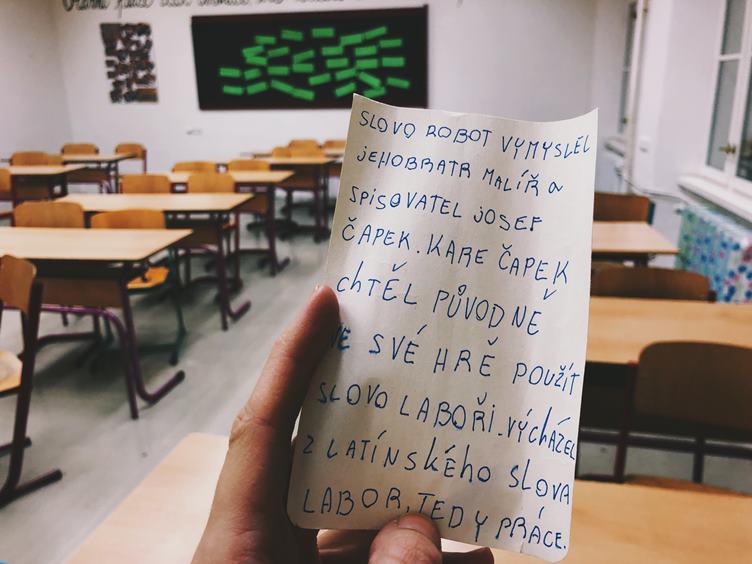 SLOVO ROBOT VYMYSLEL
JEHOBRATR MALÍŘ a
SPISOVATEL JOSEF
ČAPEK. KARE ČAPEK
chTĚL PŮVODNĚ
VE SVÉ HRĚ POUŽÍT
SLOVO LABOŘI. VÝCháZEL
Z LATÍNSkÉhO SLOVA
LABOR, TEDY PRÁCE.